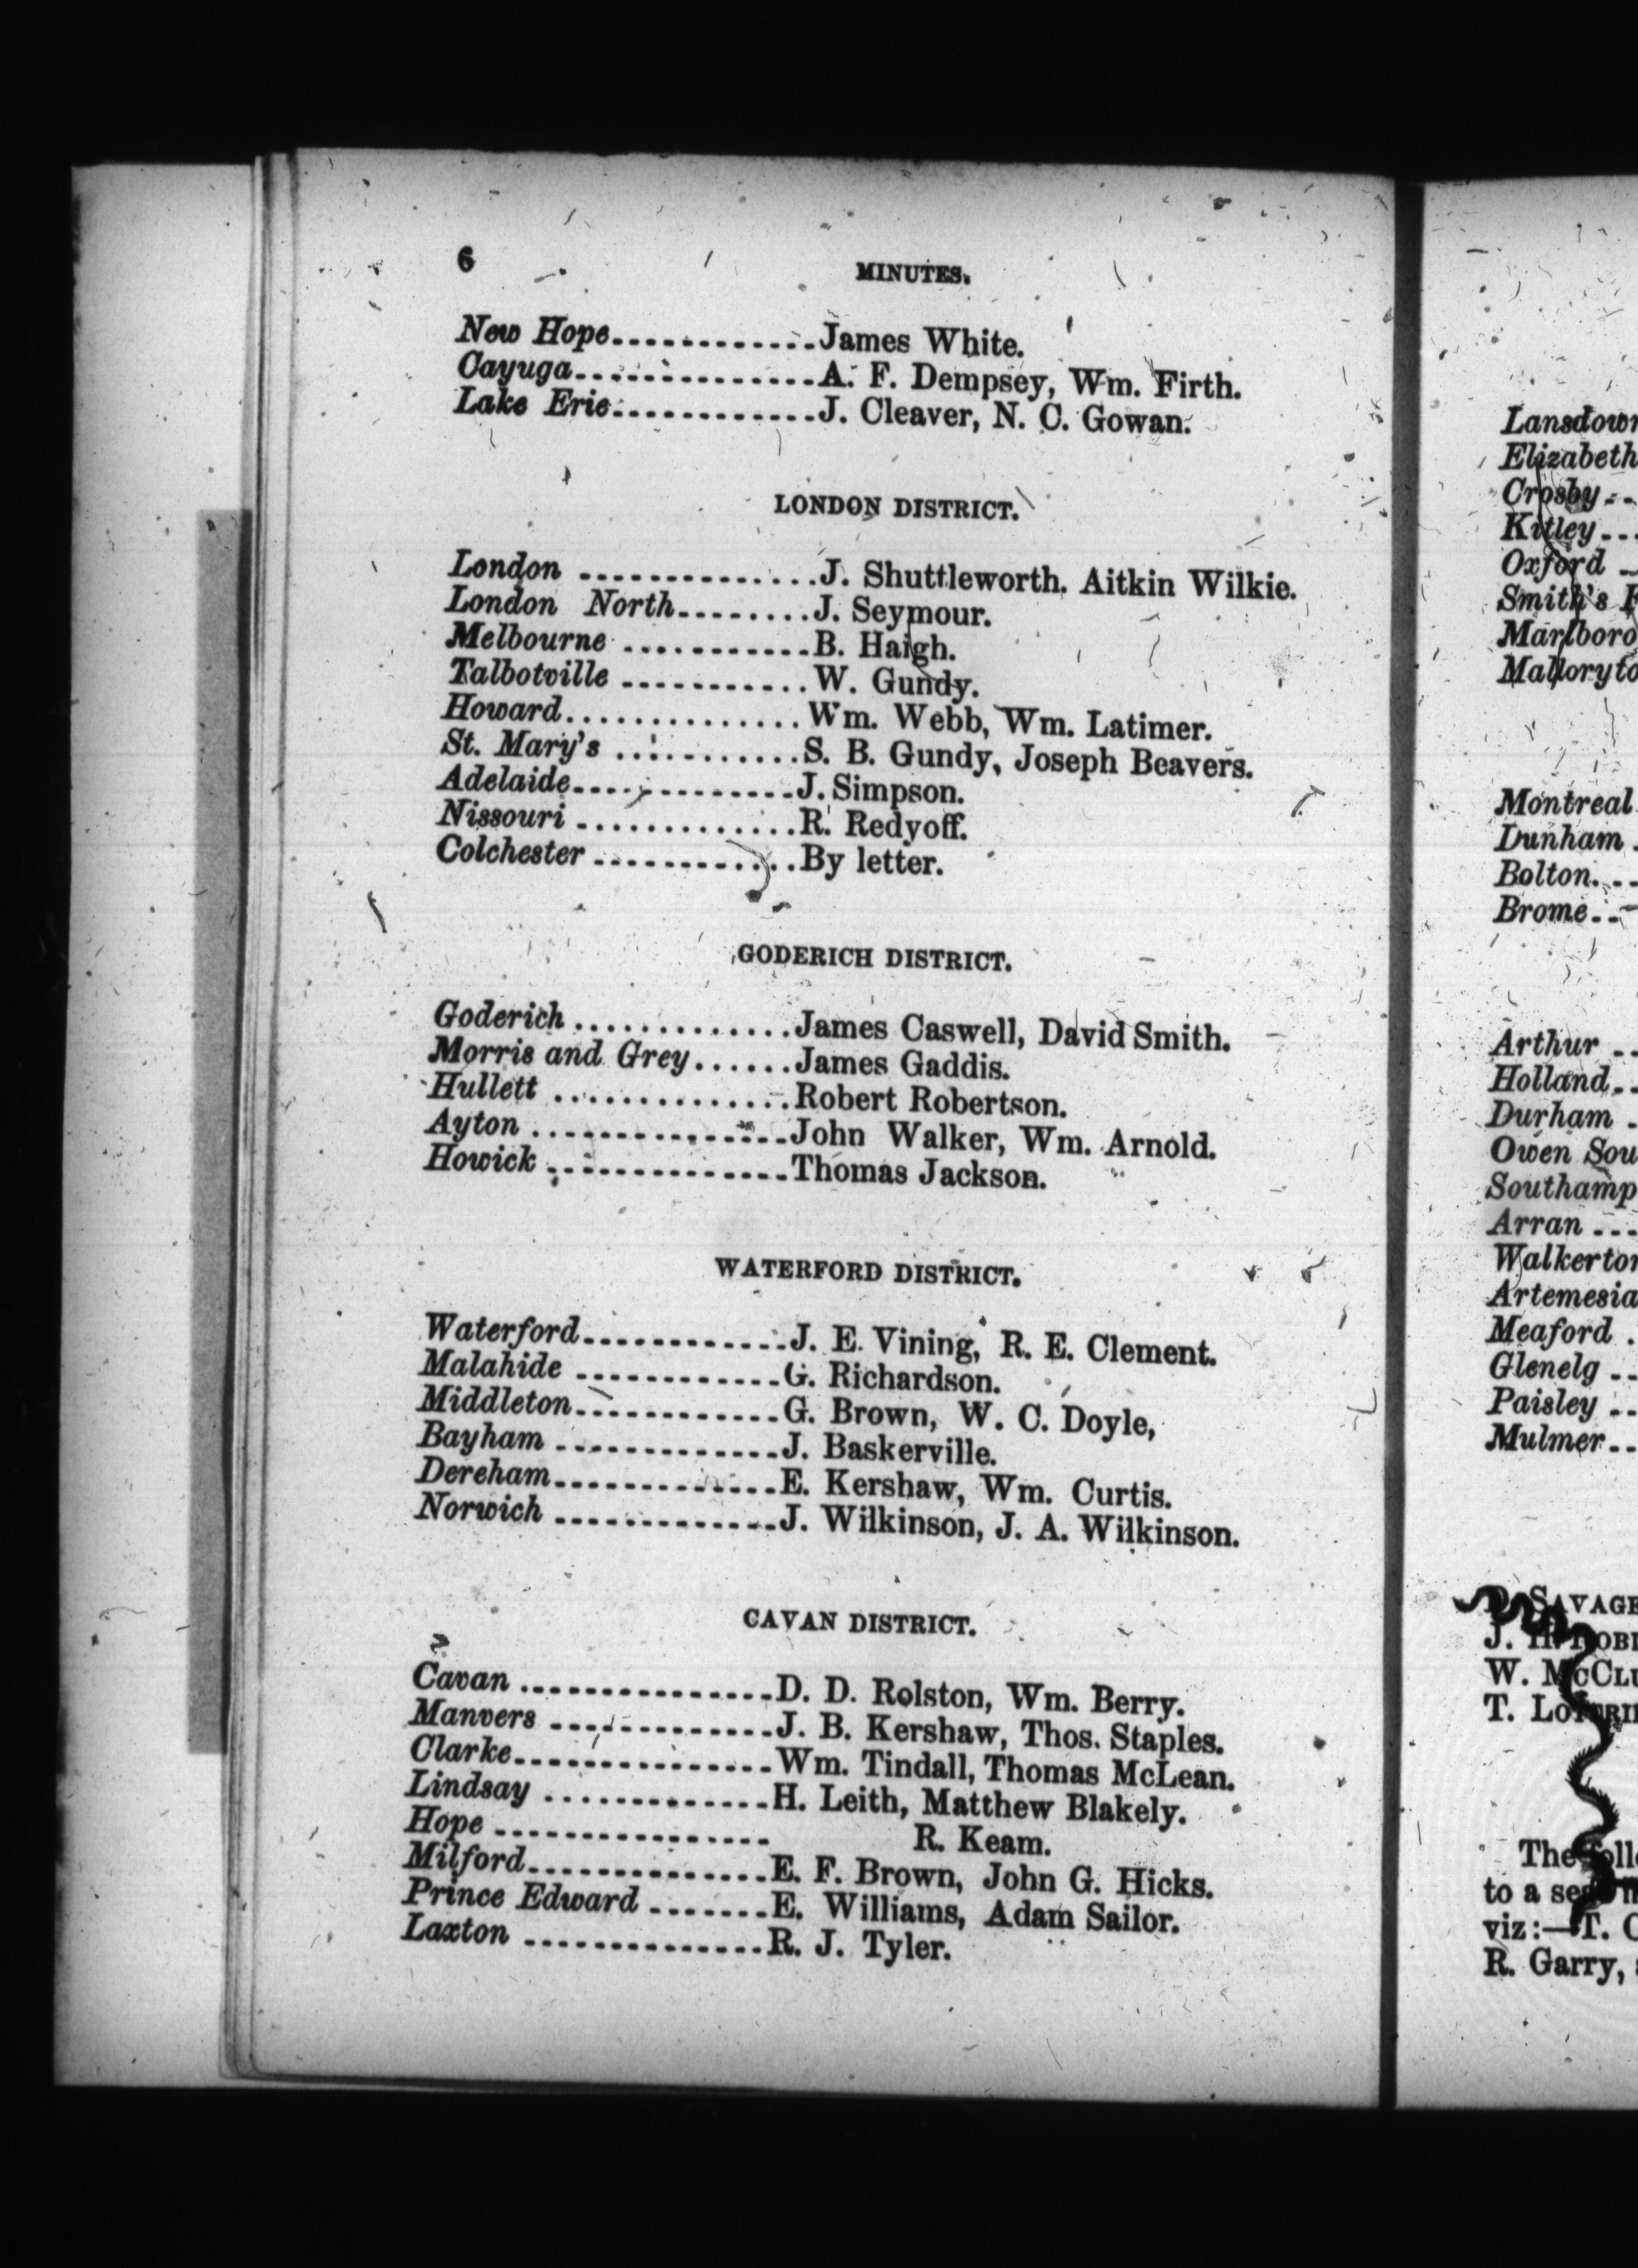 6
MINUTES.
New Hope............James White.
Cayuga..............A. F. Dempsey, Wm. Firth.
Lake Erie............J. Cleaver, N. C. Gowan.
LONDON DISTRICT.
London ..............J. Shuttleworth. Aitkin Wilkie.
London North........J. Seymour.
Melbourne ...........B. Haigh.
Talbotville ...........W. Gundy.
Howard..............Wm. Webb, Wm. Latimer.
St. Mary's ...........S. B. Gundy, Joseph Beavers.
Adelaide.............J. Simpson.
Nissouri .............R. Redyoff.
Colchester ............By letter.
GODERICH DISTRICT.
Goderich .............James Caswell, David Smith.
Morris and Grey......James Gaddis.
Hullett ..............Robert Robertson.
Ayton ...............John Walker, Wm. Arnold.
Howick ..............Thomas Jackson.
WATERFORD DISTRICT.
Waterford............J. E. Vining, R. E. Clement.
Malahide ............G. Richardson.
Middleton............G. Brown, W. C. Doyle,
Bayham .............J. Baskerville.
Dereham.............E. Kershaw, Wm. Curtis.
Norwich .............J. Wilkinson, J. A. Wilkinson.
CAVAN DISTRICT.
Cavan ...............D. D. Rolston, Wm. Berry.
Manvers .............J. B. Kershaw, Thos. Staples.
Clarke...............Wm. Tindall, Thomas McLean.
Lindsay .............H. Leith, Matthew Blakely.
Hope ................ R. Keam.
Milford..............E. F. Brown, John G. Hicks.
Prince Edward .......E. Williams, Adam Sailor.
Laxton ..............R. J. Tyler.
Elizabeth
Crosby...
Kitley...
Oxford
Smith's
Montreal
Dunham .
Bolton...
Brome...
Arthur ..
Holland..
Durham .
Owen
Arran ...
Artemesia
Meaford .
Glenelg ..
Paisley ..
Mulmer..
SAVAGE
J. H.
W.
T.
The
to a
viz:—T.
R. Garry,